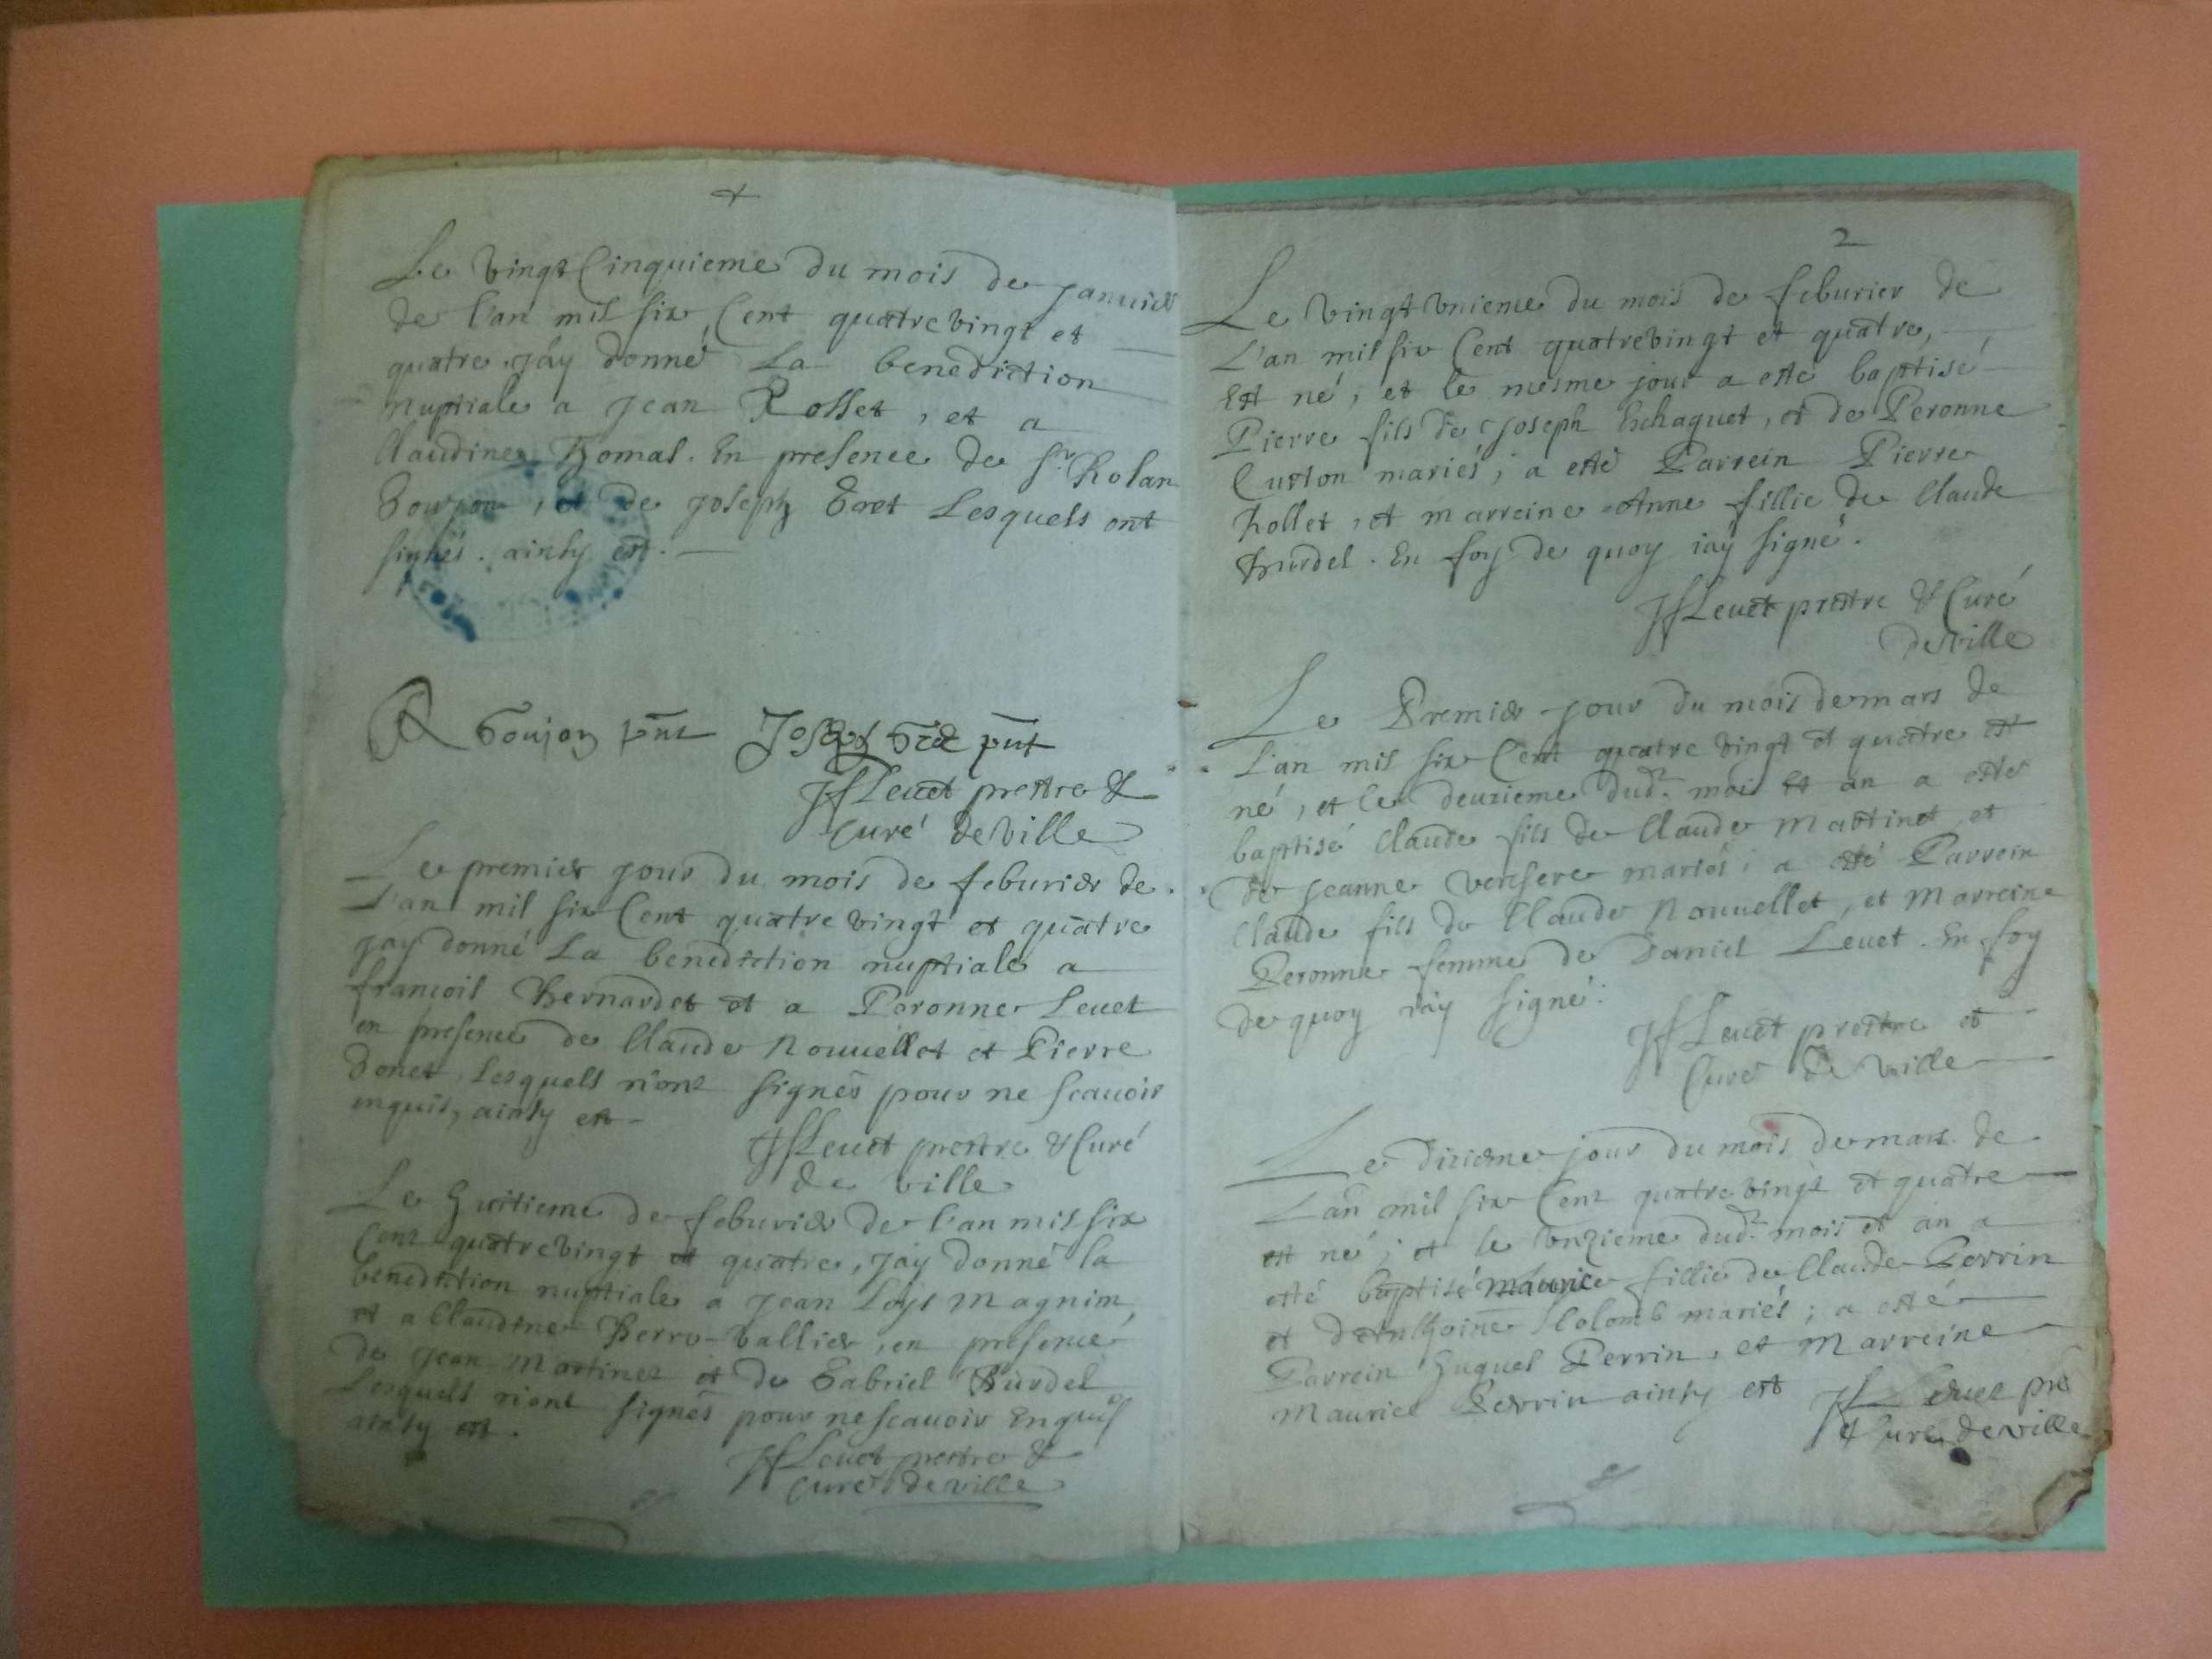 Le vingt Cinquieme du mois de janvier
de l'an mil six Cent quatrevingt et
quatre, jáy donné La benediction
nuptiale a jean Rosset, et a
Claudine Thomas. En presence de sr. Rolan
Goujon, et de joseph Gret Lesquels ont
signés. ainsy est.
R Goujon pnt Joseph pnt
JfLeuet prestre &
Curé deville
Le premier jour du mois de feburier de
L'an mil six Cent quatre vingt et quatre
jay donné La benediction nuptiale a
francois Bernardet et a Peronne Leuet
en presence de Claude Nouuellet et Pierre
Donet, Lesquels n'ont signés pour ne scauoir
enquis, ainsy est
JfLeuet prestre & Curé
de ville
Le huitieme de feburier de l'an mil six
Cent quatrevingt et quatre, jay donné la
benediction nuptiale a jean Loys Magnin,
et a Claudine Berro-vallier, en presence
de jean Martinet et de Gabriel Burdel
Lesquels n'ont signés pour ne scauoir Enquis
ainsy est.
JfLeuet prestre &
Curé deville
2
Le vingt vnieme du mois de feburier de
L'an mil six Cent quatrevingt et quatre,
Est né, et le mesme jour a esté baptisé
Pierre fils de Joseph Eschaquet, et de Peronne
Curton mariés; a esté Parrein Pierre
Rollet, et marreine Anne fillie de Claude
Burdel. En foy de quoy iay signé.
JfLeuet prestre & Curé
deville
Le Premier jour du mois de mars de
L'an mil six Cent quatre vingt et quatre est
né, et le deuzieme dudt. mois et an a esté
baptisé Claude fils de Claude Martinet et
de jeanne mariés; a esté Parrein
Claude fils de Claude Nouuellet, et Marreine
Peronne femme de Daniel Leuet. En foy
de quoy iáy signé.
JfLeuet prestre et
Curé de ville
Le dizieme jour du mois de mars de
L'an mil six Cent quatre vingt et quatre
est né; et le vnzieme dudt. mois et an a
esté baptisé maurice fillie de Claude Perrin
et d'enthoine Colomb mariés; a esté
Parrein huques Perrin, et Marreine
Maurice Perrin ainsy est Jf Leuet pre
& Curé deville